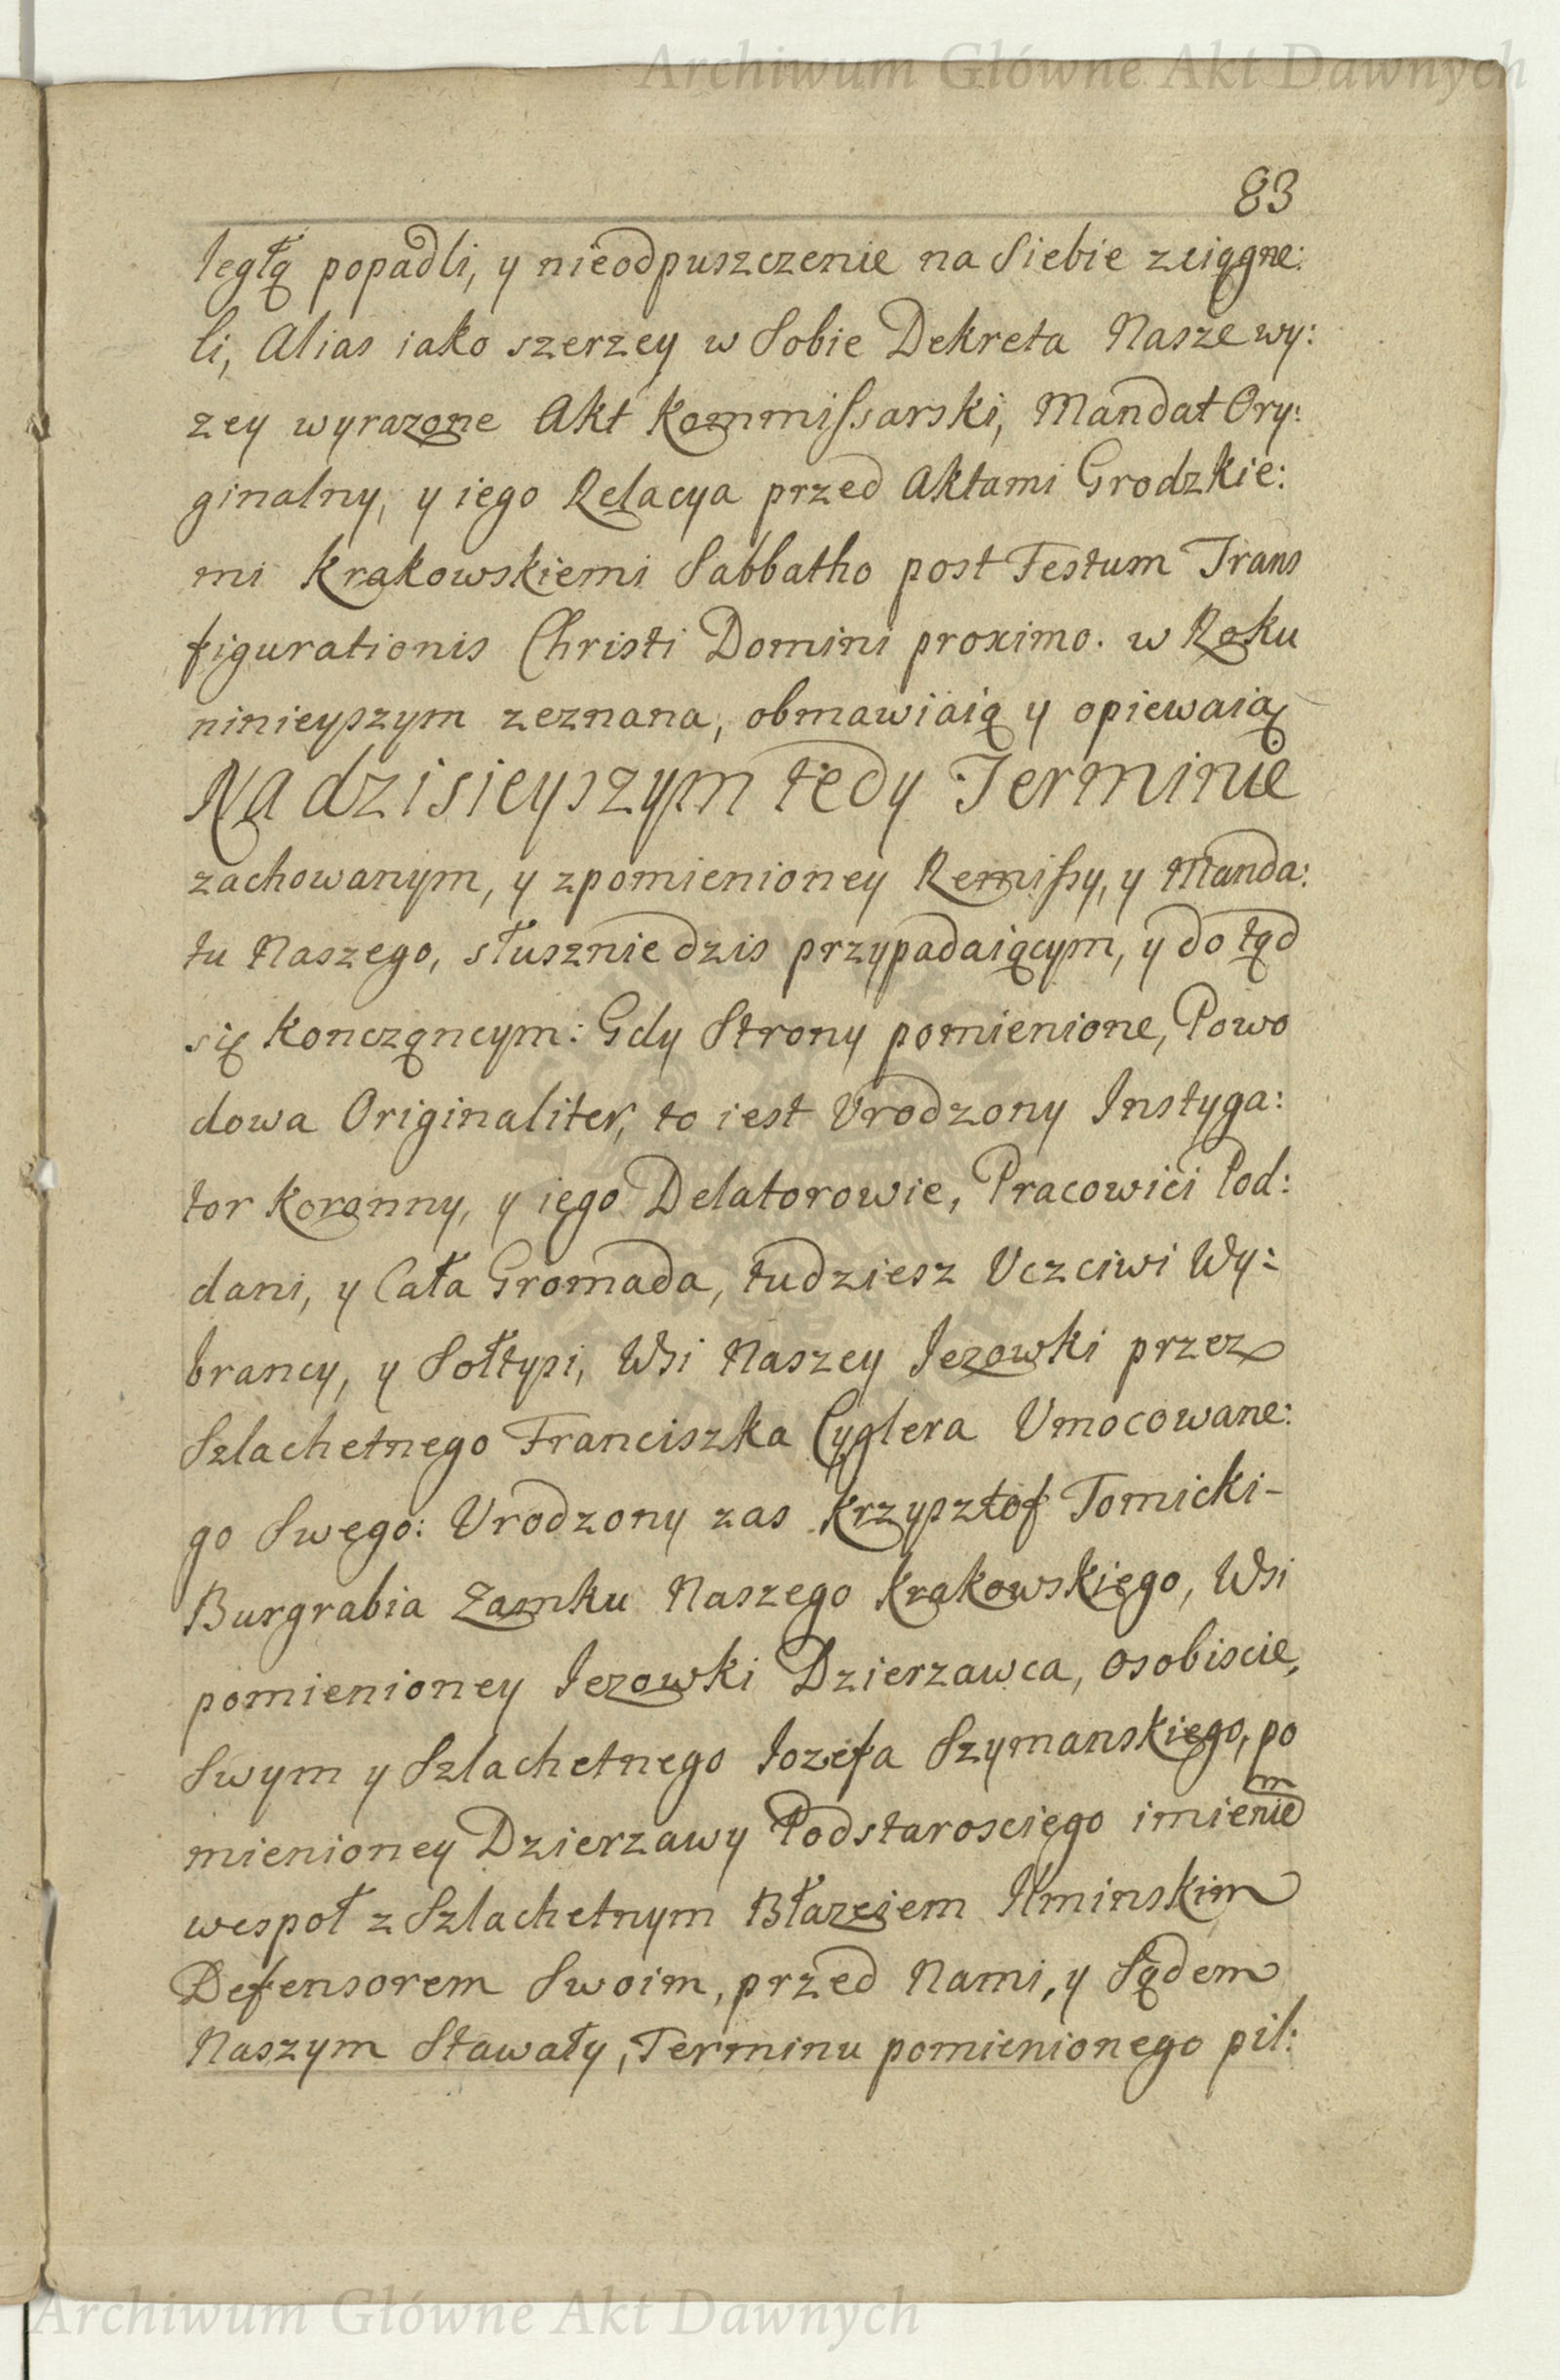 Archiwum Główne Akt Dawnych
83
ległą popadli, y nieodpuszczenie na Siebie zciągne:
li, Alias iako szerzey w Sobie Dekreta Nasze wy:
zey wyrazone Akt Kommissarski, Mandat Ory:
ginalny, y iego Relacya przed Aktami Grodzkie:
mi Krakowskiemi Sabbatho post Festum Trans
figurationis Christi Domini proximo. w Roku
ninieyszym zeznana, obmawiaią y opiewaią
Na dzisieyszym tedy Terminie
zachowanym, y zpomienioney Remissy, y Manda:
tu Naszego, słusznie dzis przypadaiącym, y do tąd
się Konczącym: Gdy Strony pomienione, Powo
dowa Originaliter, to iest Urodzony Instyga:
tor Koronny, y iego Delatorowie, Pracowici Pod:
dani, y Cała Gromada, tudziesz Uczciwi Wy:
brancy, y Sołtysi, Wsi Naszey Jezowki przez
Szlachetnego Franciszka Cyglera Umocowane:
go Swego: Urodzony zas Krzysztof Tomicki-
Burgrabia Zamku Naszego Krakowskiego, Wsi
pomienioney Jezowki Dzierzawca, osobiscie,
Swym y Szlachetnego Iozefa Szymanskiego, po
mienioney Dzierzawy Podstarosciego imieniem
wespoł z Szlachetnym Błazeiem Ilminskim
Defensorem Swoim, przed Nami, y Sądem
Naszym Stawały, Terminu pomienionego pil:
Archiwum Główne Akt Dawnych